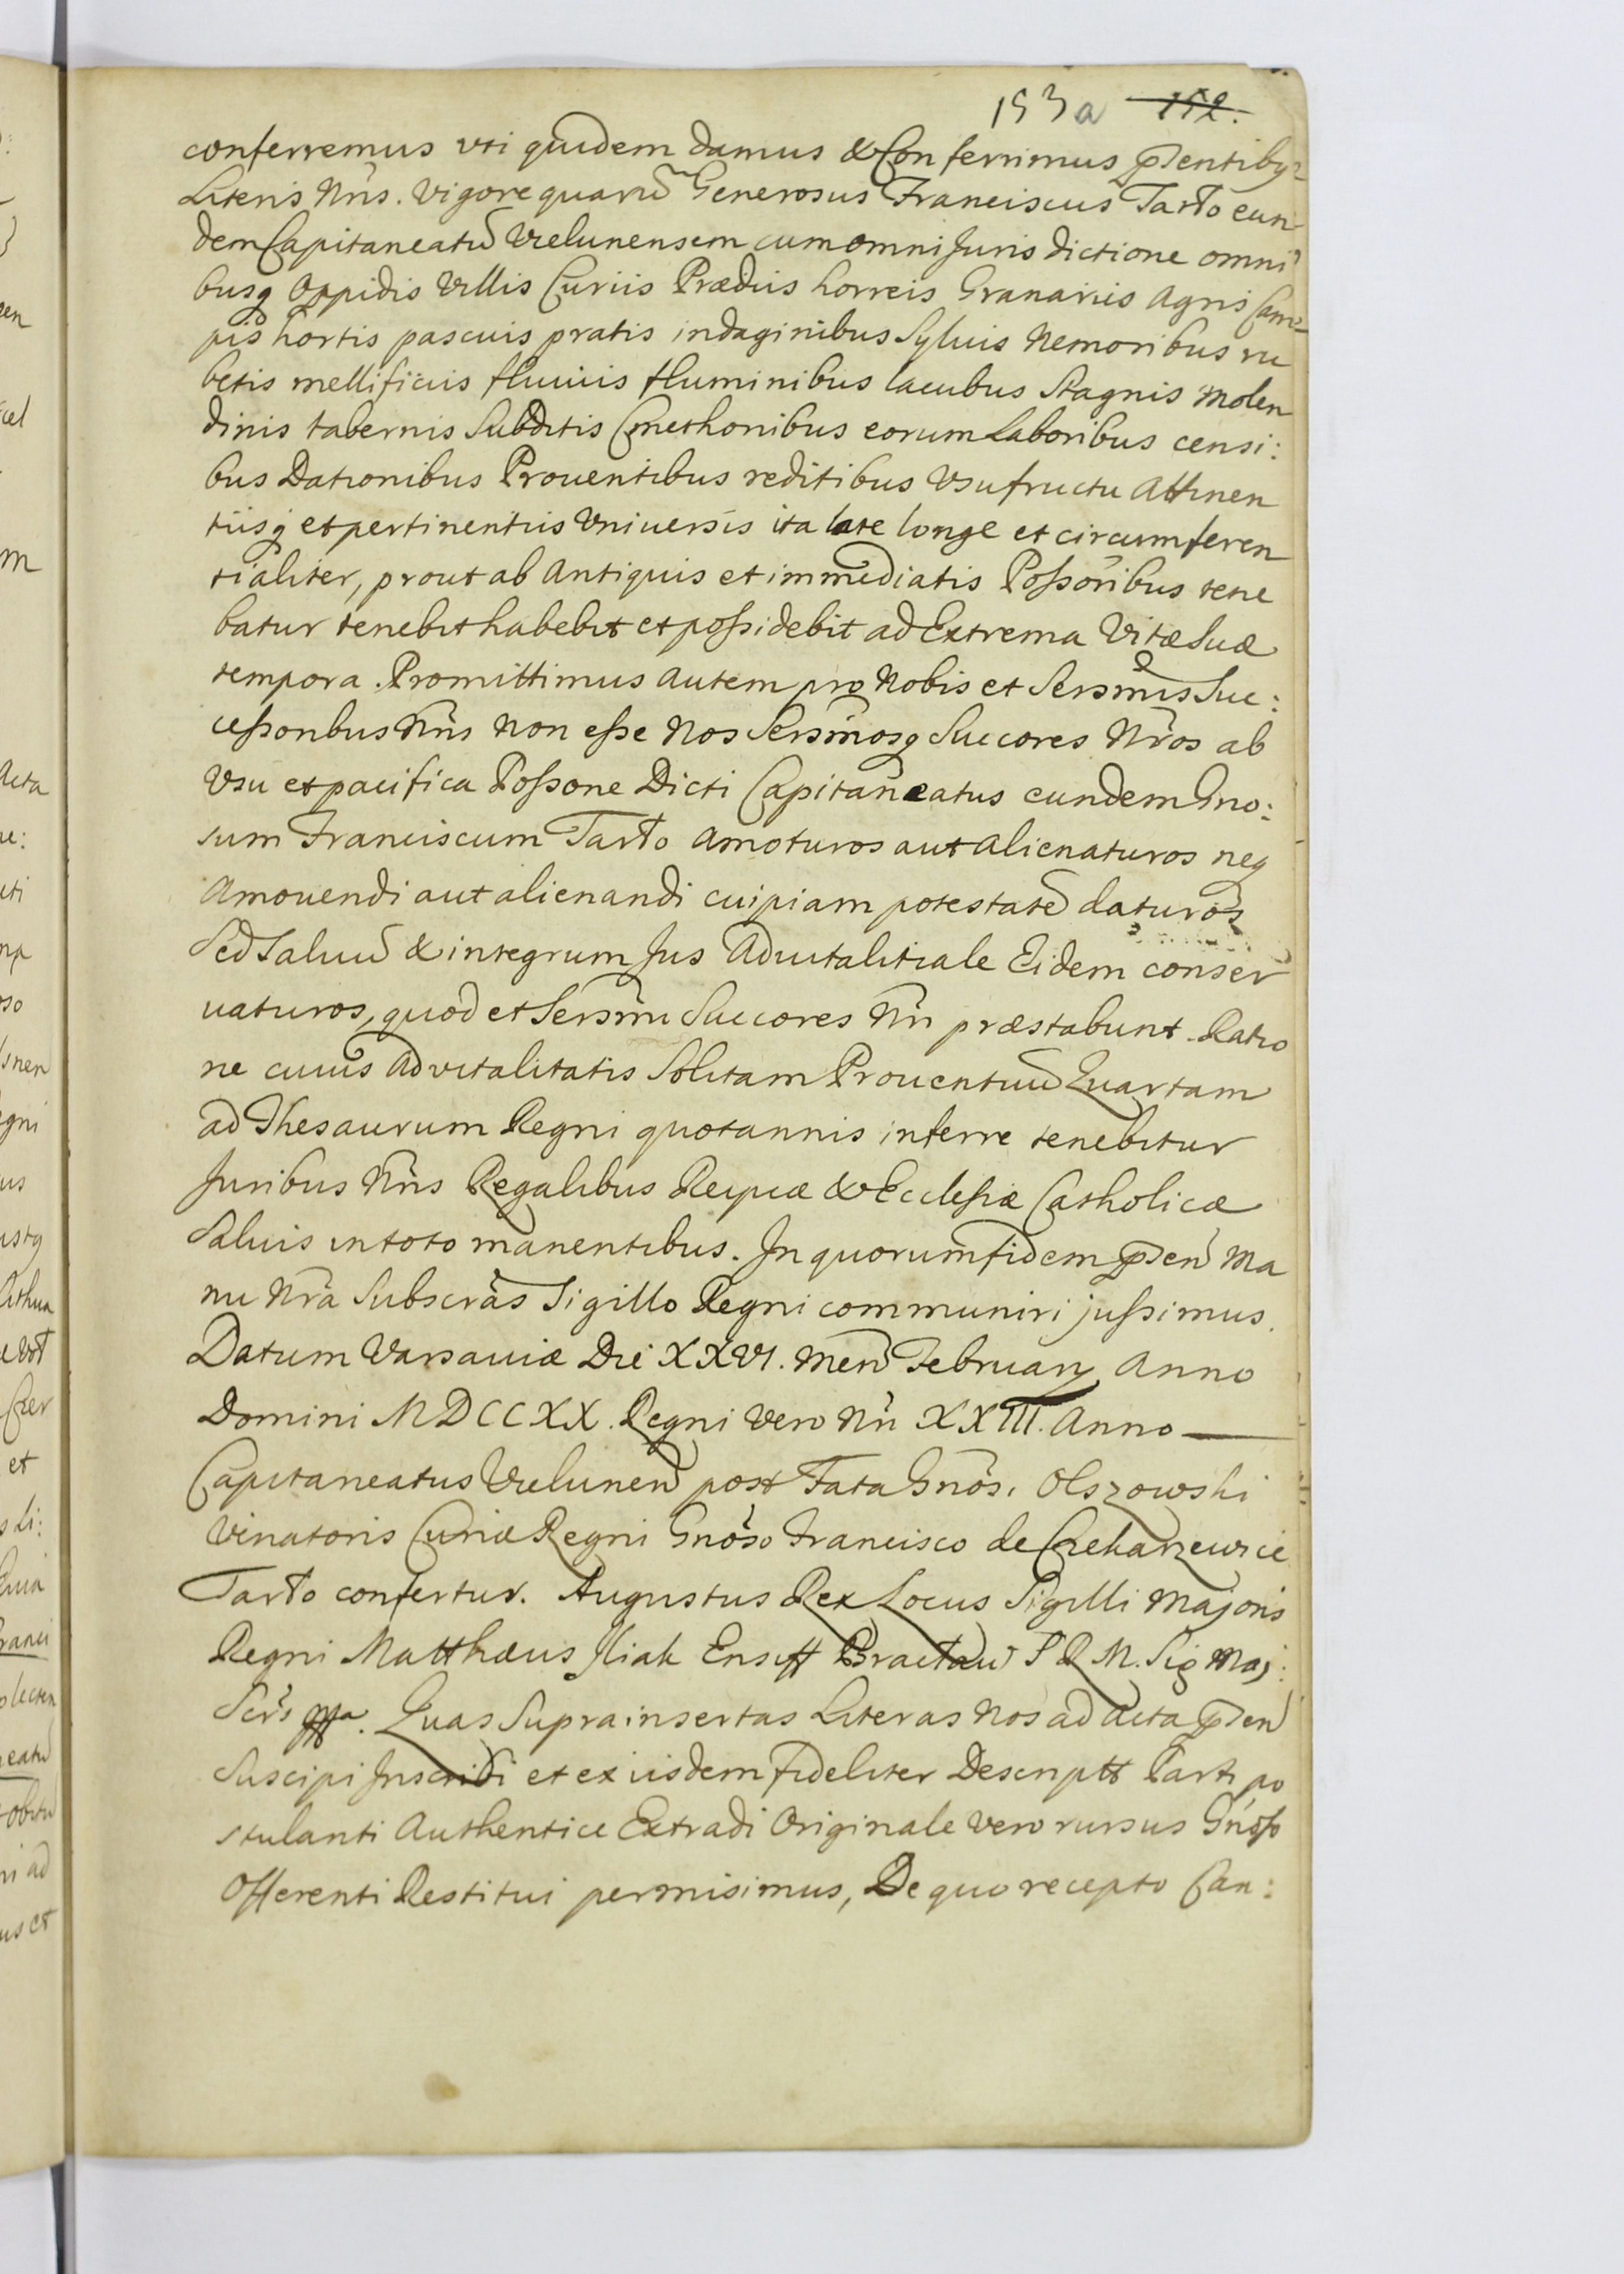 153a 152.
conferremus uti quidem damus & Conferrimus pñtibus
Literis Nris. Vigore quarũ Generosus Franciscus Tarło eun
dem Capitaneatũ Vielunensem cum omni Juris dictione omni
busq Oppidis Villis Curiis Prædiis horreis Granariis Agris Cam=
pis hortis pascuis pratis indaginibus Sylvis Nemoribus ru
betis mellificiis fluviis fluminibus lacubus Stagnis Molen
dinis tabernis Subditis Cmethonibus eorum Laboribus censi:
bus Dationibus Proventibus reditibus Vsufructu Attinen
tiisq et pertinentiis Vniversis ita late longe et circumferen
tialiter, prout ab Antiquis et immediatis Possoribus tene
batur tenebit habebit et possidebit ad Extrema Vitæ Suæ
tempora. Promittimus autem pro Nobis et Sersmis Suc:
cessoribus Nris Non esse Nos Sersmosq Succores Nros ab
Vsu et pacifica Possone Dicti Capitaneatus eundem Gno:
sum Franciscum Tarło Amoturos aut Alienaturos neq
Amovendi aut alienandi cuipiam potestatẽ daturos
Sed Salvũ & integrum Jus Advitalitiale Eidem conser
vaturos, quod et Sersmi Succores Nri præstabunt. Ratio
ne cuius Advitalitatis Solitam Proventuũ Quartam
ad Thesaurum Regni quotannis inferre tenebitur
Juribus Nris Regalibus Reipcæ & Ecclesiæ Catholicæ
Salvis in toto manentibus. In quorum fidem pñ Ma
nu Nra Subscras Sigillo Regni communiri jussimus.
Datum Varsaviæ Die XXVI. Men Februarii Anno
Domini MDCCXX. Regni Vero Nri XXIII. Anno
Capitaneatus Vielunen post Fata Gnosi Olszowski
Venatoris Curiæ Regni Gnoso Francisco de
Tarło confertur. Augustus Rex Locus Sigilli Majoris
Regni Matthæus Jliak Ensiff Bracłav S R M. Sig Maj:
Scrs mpa. Quas Suprainsertas Literas Nos ad Acta pñ
Suscipi Inscribi et ex iisdem fideliter Descriptt Parti po
stulanti Authentice Extradi Originale vero rursus Gnoso
Offerenti Restitui permisimus, De quo recepto Can: